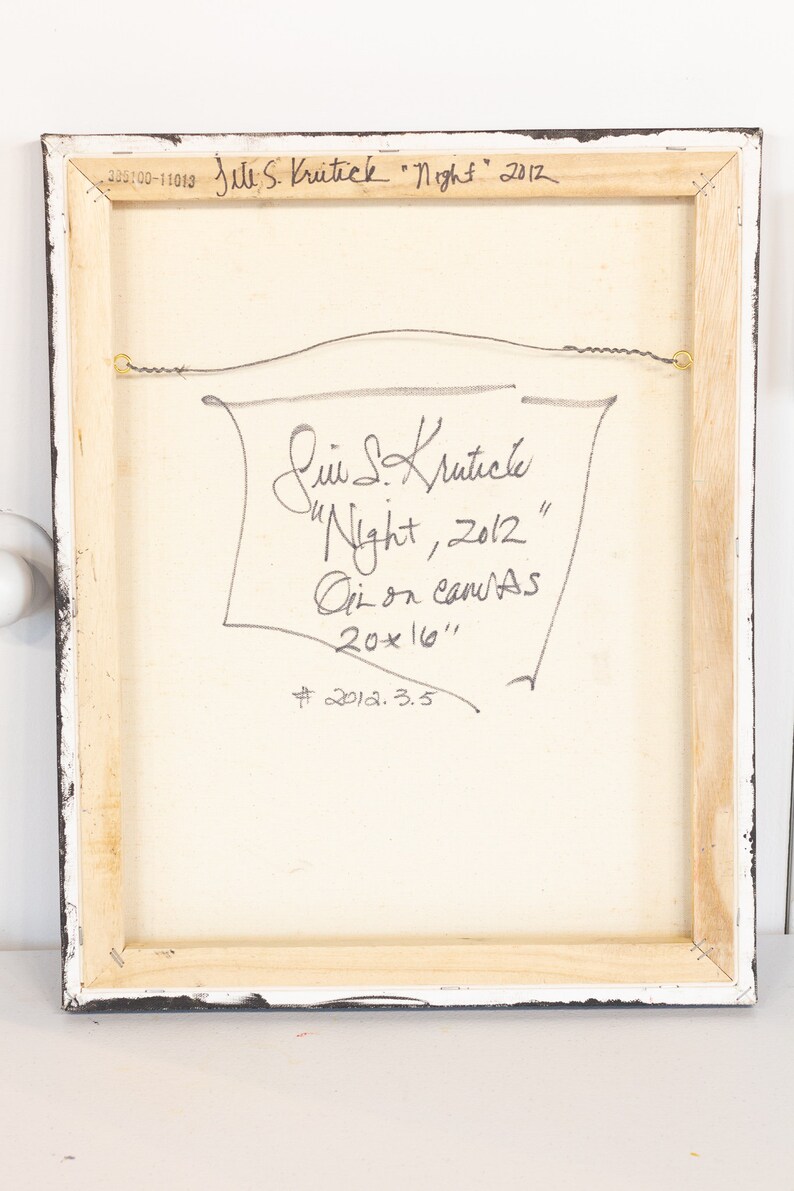 385100-11013 Jill S. Krutick "Night" 2012
Jill S. Krutick
"Night, 2012"
Oil on canvas
20x16"
# 2012.3.5